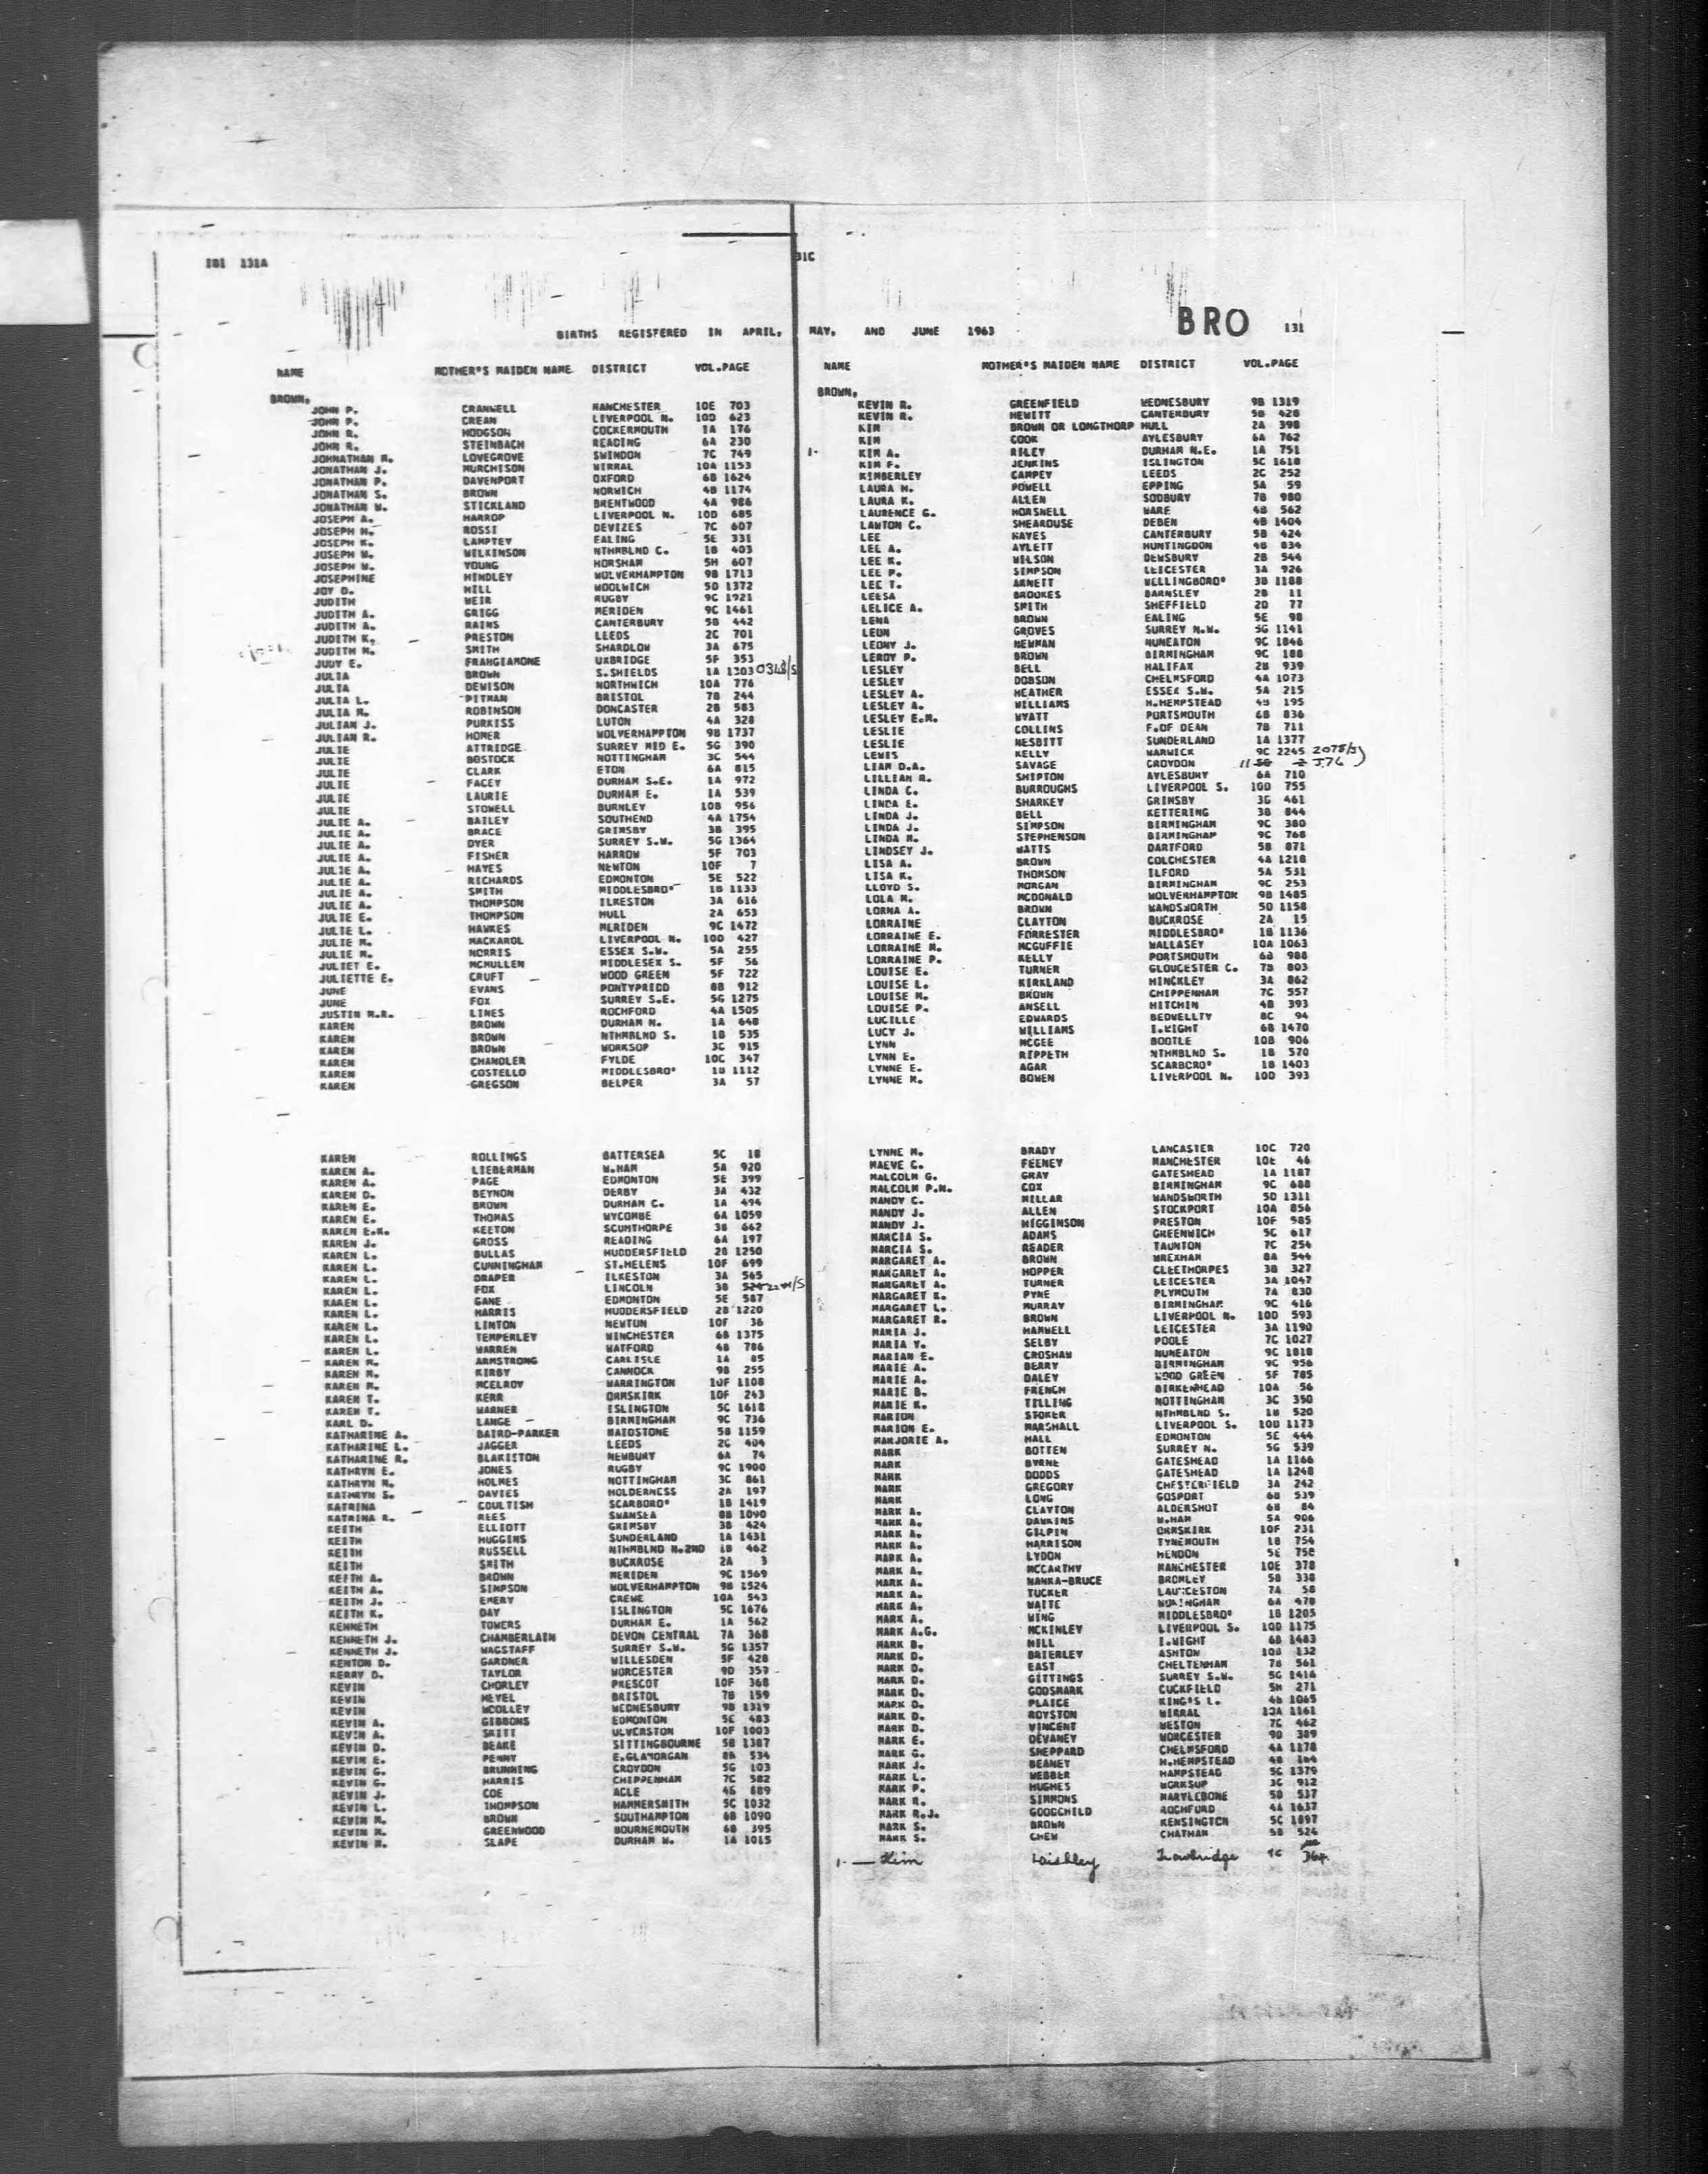 101 131A
31C
BRO 131
BIRTHS REGISTERED IN APRIL, MAY, AND JUNE 1963
NAME MOTHER'S MAIDEN NAME DISTRICT VOL.PAGE
BROWN,
JOHN P. CRANWELL MANCHESTER 10E 703
JOHN P. CREAN LIVERPOOL N. 10D 623
JOHN R. HODGSON COCKERMOUTH 1A 176
JOHN R. STEINBACH READING 6A 230
JOHNATHAN M. LOVEGROVE SWINDON 7C 749
JONATHAN J. MURCHISON WIRRAL 10A 1153
JONATHAN P. DAVENPORT OXFORD 6B 1624
JONATHAN S. BROWN NORWICH 4B 1174
JONATHAN W. STICKLAND BRENTWOOD 4A 986
JOSEPH A. HARROP LIVERPOOL N. 10D 685
JOSEPH H. ROSSI DEVIZES 7C 607
JOSEPH K. LAMPTEY EALING 5E 331
JOSEPH W. WILKINSON NTHMBLND C. 1B 403
JOSEPH W. YOUNG HORSHAM 5H 607
JOSEPHINE HINDLEY WOLVERHAMPTON 9B 1713
JOY D. HILL WOOLWICH 5D 1372
JUDITH WEIR RUGBY 9C 1921
JUDITH A. GRIGG MERIDEN 9C 1461
JUDITH A. RAINS CANTERBURY 5B 442
JUDITH K. PRESTON LEEDS 2C 701
JUDITH M. SMITH SHARDLOW 3A 675
JUDY E. FRANGIAMONE UXBRIDGE 5F 353
JULIA BROWN S.SHIELDS 1A 1303 0368/S
JULIA DEWISON NORTHWICH 10A 776
JULIA L. PITMAN BRISTOL 7B 244
JULIA M. ROBINSON DONCASTER 2B 583
JULIAN J. PURKISS LUTON 4A 328
JULIAN R. HOMER WOLVERHAMPTON 9B 1737
JULIE ATTRIDGE SURREY MID E. 5G 390
JULIE BOSTOCK NOTTINGHAM 3C 544
JULIE CLARK ETON 6A 815
JULIE FACEY DURHAM S.E. 1A 972
JULIE LAURIE DURHAM E. 1A 539
JULIE STOWELL BURNLEY 10B 956
JULIE A. BAILEY SOUTHEND 4A 1754
JULIE A. BRACE GRIMSBY 3B 395
JULIE A. DYER SURREY S.W. 5G 1364
JULIE A. FISHER HARROW 5F 703
JULIE A. HAYES NEWTON 10F 7
JULIE A. RICHARDS EDMONTON 5E 522
JULIE A. SMITH MIDDLESBRO' 1B 1133
JULIE A. THOMPSON ILKESTON 3A 616
JULIE E. THOMPSON HULL 2A 653
JULIE L. HAWKES MERIDEN 9C 1472
JULIE M. MACKAROL LIVERPOOL N. 10D 427
JULIE M. NORRIS ESSEX S.W. 5A 255
JULIET E. MCMULLEN MIDDLESEX S. 5F 56
JULIETTE E. CRUFT WOOD GREEN 5F 722
JUNE EVANS PONTYPRIDD 8B 912
JUNE FOX SURREY S.E. 5G 1275
JUSTIN M.R. LINES ROCHFORD 4A 1505
KAREN BROWN DURHAM N. 1A 648
KAREN BROWN NTHMBLND S. 1B 535
KAREN BROWN WORKSOP 3C 915
KAREN CHANDLER FYLDE 10C 347
KAREN COSTELLO MIDDLESBRO' 1B 1112
KAREN GREGSON BELPER 3A 57
KAREN ROLLINGS BATTERSEA 5C 18
KAREN A. LIEBERMAN W.HAM 5A 920
KAREN A. PAGE EDMONTON 5E 399
KAREN D. BEYNON DERBY 3A 432
KAREN E. BROWN DURHAM C. 1A 494
KAREN E. THOMAS WYCOMBE 6A 1059
KAREN E.M. KEETON SCUNTHORPE 3B 662
KAREN J. GROSS READING 6A 197
KAREN L. BULLAS HUDDERSFIELD 2B 1250
KAREN L. CUNNINGHAM ST.HELENS 10F 699
KAREN L. DRAPER ILKESTON 3A 565
KAREN L. FOX LINCOLN 3B
KAREN L. GANE EDMONTON 5E 587
KAREN L. HARRIS HUDDERSFIELD 2B 1220
KAREN L. LINTON NEWTON 10F 36
KAREN L. TEMPERLEY WINCHESTER 6B 1375
KAREN L. WARREN WATFORD 4B 786
KAREN M. ARMSTRONG CARLISLE 1A 85
KAREN M. KIRBY CANNOCK 9B 255
KAREN M. MCELROY WARRINGTON 10F 1108
KAREN T. KERR ORMSKIRK 10F 243
KAREN T. WARNER ISLINGTON 5C 1618
KARL D. LANGE BIRMINGHAM 9C 736
KATHARINE A. BAIRD-PARKER MAIDSTONE 5B 1159
KATHARINE L. JAGGER LEEDS 2C 404
KATHARINE R. BLAKISTON NEWBURY 6A 74
KATHRYN E. JONES RUGBY 9C 1900
KATHRYN M. HOLMES NOTTINGHAM 3C 861
KATHRYN S. DAVIES HOLDERNESS 2A 197
KATRINA COULTISH SCARBORO' 1B 1419
KATRINA R. REES SWANSEA 8B 1090
KEITH ELLIOTT GRIMSBY 3B 424
KEITH HUGGINS SUNDERLAND 1A 1431
KEITH RUSSELL NTHMBLND N.2ND 1B 462
KEITH SMITH BUCKROSE 2A 3
KEITH A. BROWN MERIDEN 9C 1569
KEITH A. SIMPSON WOLVERHAMPTON 9B 1524
KEITH J. EMERY CREWE 10A 543
KEITH K. DAY ISLINGTON 5C 1676
KENNETH TOWERS DURHAM E. 1A 562
KENNETH J. CHAMBERLAIN DEVON CENTRAL 7A 368
KENNETH J. WAGSTAFF SURREY S.W. 5G 1357
KENTON D. GARDNER WILLESDEN 5F 428
KERRY D. TAYLOR WORCESTER 9D 357
KEVIN CHORLEY PRESCOT 10F 368
KEVIN HEYEL BRISTOL 7B 159
KEVIN WOOLLEY WEDNESBURY 9B 1319
KEVIN A. GIBBONS EDMONTON 5E 483
KEVIN A. SKITT ULVERSTON 10F 1003
KEVIN D. BEAKE SITTINGBOURNE 5B 1387
KEVIN E. PENNY E.GLAMORGAN 8A 534
KEVIN G. BRUNNING CROYDON 5G 103
KEVIN G. HARRIS CHIPPENHAM 7C 582
KEVIN J. COE ACLE 689
KEVIN L. THOMPSON HAMMERSMITH 5C 1032
KEVIN M. BROWN SOUTHAMPTON 6B 1090
KEVIN M. GREENWOOD BOURNEMOUTH 6B 395
KEVIN M. SLAPE DURHAM W. 1A 1015
NAME MOTHER'S MAIDEN NAME DISTRICT VOL.PAGE
BROWN,
KEVIN R. GREENFIELD WEDNESBURY 9B 1319
KEVIN R. HEWITT CANTERBURY 5B 428
KIM BROWN OR LONGTHORP HULL 2A 398
KIM COOK AYLESBURY 6A 762
1. KIM A. RILEY DURHAM N.E. 1A 751
KIM F. JENKINS ISLINGTON 5C 1618
KIMBERLEY CAMPEY LEEDS 2C 252
LAURA H. POWELL EPPING 5A 59
LAURA K. ALLEN SODBURY 7B 980
LAURENCE G. HORSNELL WARE 4B 562
LAWTON C. SHEAROUSE DEBEN 4B 1404
LEE HAYES CANTERBURY 5B 424
LEE A. AYLETT HUNTINGDON 4B 834
LEE K. WILSON DEWSBURY 2B 544
LEE P. SIMPSON LEICESTER 3A 926
LEE T. ARNETT WELLINGBORO' 3B 1188
LEESA BROOKES BARNSLEY 2B 11
LELICE A. SMITH SHEFFIELD 2D 77
LENA BROWN EALING 5E 98
LEON GROVES SURREY N.W. 5G 1141
LEONY J. NEWMAN NUNEATON 9C 1846
LEROY P. BROWN BIRMINGHAM 9C 188
LESLEY BELL HALIFAX 2B 939
LESLEY DOBSON CHELMSFORD 4A 1073
LESLEY A. HEATHER ESSEX S.W. 5A 215
LESLEY A. WILLIAMS H.HEMPSTEAD 4B 195
LESLEY E.M. WYATT PORTSMOUTH 6B 836
LESLIE COLLINS F.OF DEAN 7B 711
LESLIE NESBITT SUNDERLAND 1A 1377
LEWIS KELLY WARWICK 9C 2245 2078/S
LIAM D.A. SAVAGE CROYDON
LILLIAN R. SHIPTON AYLESBURY 6A 710
LINDA C. BURROUGHS LIVERPOOL S. 10D 755
LINDA E. SHARKEY GRIMSBY 3G 461
LINDA J. BELL KETTERING 3B 844
LINDA J. SIMPSON BIRMINGHAM 9C 380
LINDA M. STEPHENSON BIRMINGHAM 9C 768
LINDSEY J. WATTS DARTFORD 5B 871
LISA A. BROWN COLCHESTER 4A 1218
LISA K. THOMSON ILFORD 5A 531
LLOYD S. MORGAN BIRMINGHAM 9C 253
LOLA M. MCDONALD WOLVERHAMPTON 9B 1485
LORNA A. BROWN WANDSWORTH 5D 1158
LORRAINE CLAYTON BUCKROSE 2A 15
LORRAINE E. FORRESTER MIDDLESBRO' 1B 1136
LORRAINE M. MCGUFFIE WALLASEY 10A 1063
LORRAINE P. KELLY PORTSMOUTH 6B 988
LOUISE E. TURNER GLOUCESTER C. 7B 803
LOUISE L. KIRKLAND HINCKLEY 3A 862
LOUISE M. BROWN CHIPPENHAM 7C 557
LOUISE P. ANSELL HITCHIN 4B 393
LUCILLE EDWARDS BEDWELLTY 8C 94
LUCY J. WILLIAMS I.WIGHT 6B 1470
LYNN MCGEE BOOTLE 10B 906
LYNN E. RIPPETH NTHMBLND S. 1B 570
LYNNE E. AGAR SCARBORO' 1B 1403
LYNNE M. BOWEN LIVERPOOL N. 10D 393
LYNNE M. BRADY LANCASTER 10C 720
MAEVE C. FEENEY MANCHESTER 10E 46
MALCOLM G. GRAY GATESHEAD 1A 1187
MALCOLM P.M. COX BIRMINGHAM 9C 688
MANDY C. MILLAR WANDSWORTH 5D 1311
MANDY J. ALLEN STOCKPORT 10A 856
MANDY J. HIGGINSON PRESTON 10F 585
MARCIA S. ADAMS GREENWICH 5C 617
MARCIA S. READER TAUNTON 7C 254
MARGARET A. BROWN WREXHAM 8A 544
MARGARET A. HOPPER CLEETHORPES 3B 327
MARGARET A. TURNER LEICESTER 3A 1047
MARGARET K. PYNE PLYMOUTH 7A 830
MARGARET L. MURRAY BIRMINGHAM 9C 416
MARGARET R. BROWN LIVERPOOL N. 10D 593
MARIA J. HAMWELL LEICESTER 3A 1190
MARIA Y. SELBY POOLE 7C 1027
MARIAN E. CROSHAW NUNEATON 9C 1818
MARIE A. BERRY BIRMINGHAM 9C 956
MARIE A. DALEY WOOD GREEN 5F 785
MARIE B. FRENCH BIRKENHEAD 10A 56
MARIE K. TILLING NOTTINGHAM 3C 350
MARION STOKER NTHMBLND S. 1B 520
MARION E. MARSHALL LIVERPOOL S. 10D 1173
MARJORIE A. HALL EDMONTON 5E 444
MARK BOTTEN SURREY N. 5G 539
MARK BYRNE GATESHEAD 1A 1166
MARK DODDS GATESHEAD 1A 1248
MARK GREGORY CHESTERFIELD 3A 242
MARK LONG GOSPORT 6B 539
MARK A. CLAYTON ALDERSHOT 6B 84
MARK A. DAWKINS W.HAM 5A 906
MARK A. GILPIN ORMSKIRK 10F 231
MARK A. HARRISON TYNEMOUTH 1B 754
MARK A. LYDON HENDON 5E 758
MARK A. MCCARTHY MANCHESTER 10E 378
MARK A. MANKA-BRUCE BROMLEY 5B 338
MARK A. TUCKER LAUNCESTON 7A 58
MARK A. WAITE WOKINGHAM 6A 478
MARK A. WING MIDDLESBRO' 1B 1205
MARK A.G. MCKINLEY LIVERPOOL S. 10D 1175
MARK B. HILL I.WIGHT 6B 1483
MARK D. BRIERLEY ASHTON 10B 132
MARK D. EAST CHELTENHAM 7B 561
MARK D. GITTINGS SURREY S.W. 5G 1416
MARK D. GODSMARK CUCKFIELD 5H 271
MARK D. PLAICE KING'S L. 4B 1065
MARK D. ROYSTON WIRRAL 10A 1161
MARK D. VINCENT WESTON 7C 462
MARK E. DEVANEY WORCESTER 9D 389
MARK G. SHEPPARD CHELMSFORD 4A 1178
MARK J. BEANEY H.HEMPSTEAD 4B 164
MARK L. WEBBER HAMPSTEAD 5C 1379
MARK P. HUGHES WORKSOP 3C 912
MARK R. SIMMONS MARYLEBONE 5D 537
MARK R.J. GOODCHILD ROCHFORD 4A 1637
MARK S. BROWN KENSINGTON 5C 1897
MARK S. CHEW CHATHAM 5B 524
1. — Kim Laishley Trowbridge 7C